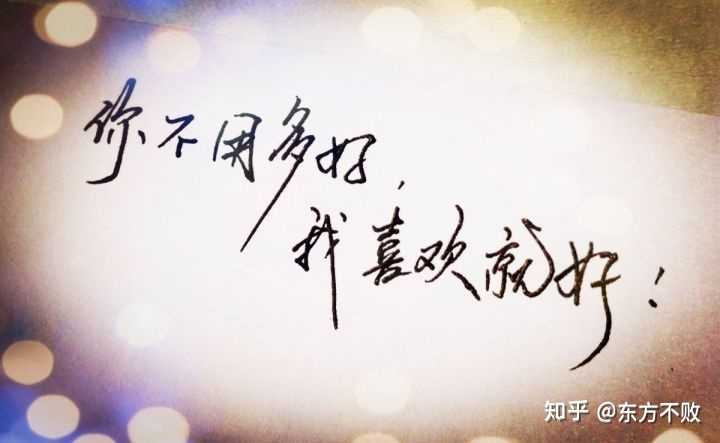 你不用多好，
我喜欢就好！
知乎 @东方不败